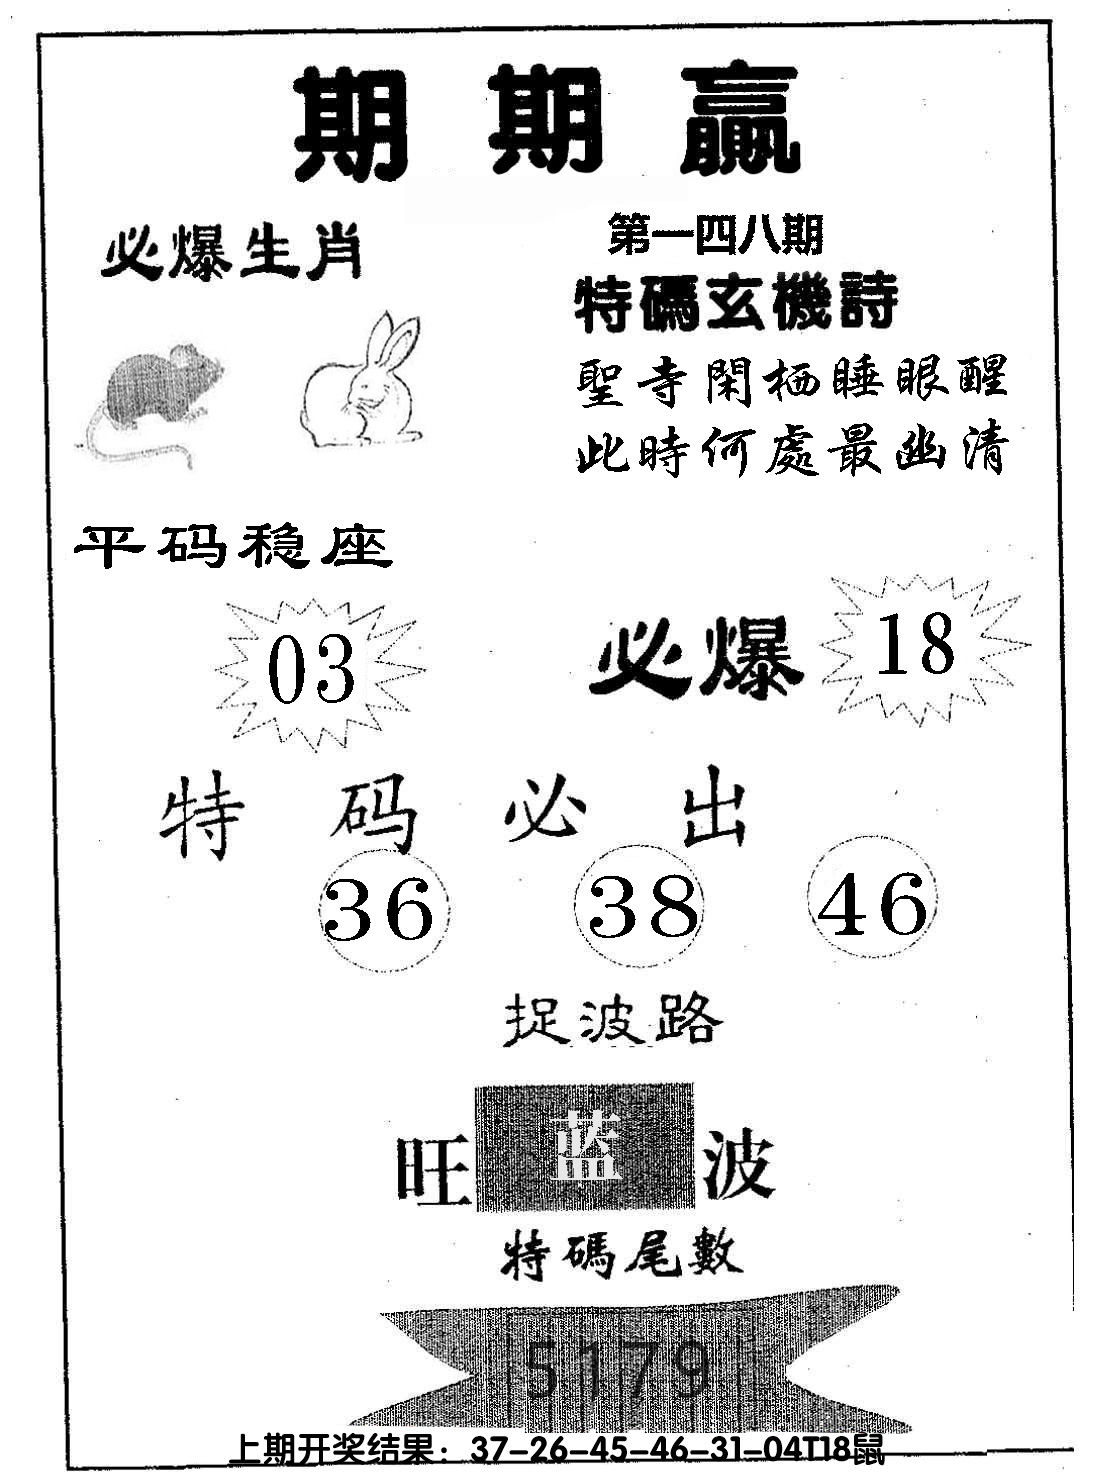 期期贏
必爆生肖
第一四八期
特碼玄機詩
聖寺閑栖睡眼醒
此時何處最幽清
平码稳座
03
必爆 18
特码必出
36 38 46
捉波路
旺 蓝 波
特碼尾數
5179
上期开奖结果：37-26-45-46-31-04T18鼠